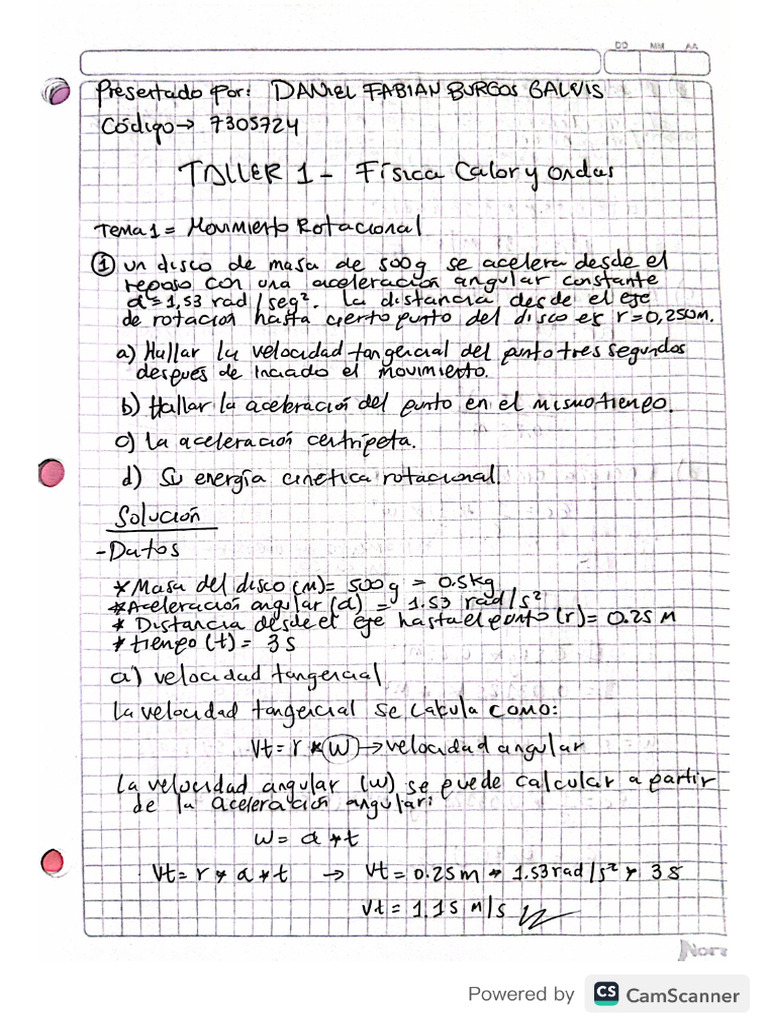 DD MM AA
Presentado por: DANIEL FABIAN BURGOS GALVIS
Código → 7305724
TALLER 1 - Física Calor y ondas
Tema 1 = Movimiento Rotacional
① un disco de masa de 500g se acelera desde el
reposo con una aceleración angular constante
α=1,53 rad/seg². La distancia desde el eje
de rotación hasta cierto punto del disco es r=0,250m.
a) Hallar la velocidad tangencial del punto tres segundos
después de iniciado el movimiento.
b) Hallar la aceleración del punto en el mismo tiempo.
c) La aceleración centrípeta.
d) Su energía cinetica rotacional.
Solución
- Datos
* Masa del disco (m) = 500g = 0.5kg
* Aceleración angular (α) = 1.53 rad/s²
* Distancia desde el eje hasta el punto (r) = 0.25 m
* tiempo (t) = 3 s
a) velocidad tangencial
la velocidad tangencial se calcula como:
Vt = r * ω → velocidad angular
la velocidad angular (ω) se puede calcular a partir
de la aceleración angular:
ω = α * t
Vt = r * α * t → Vt = 0.25m * 1.53 rad/s² * 3s
Vt = 1.15 m/s
Norma
Powered by CS CamScanner